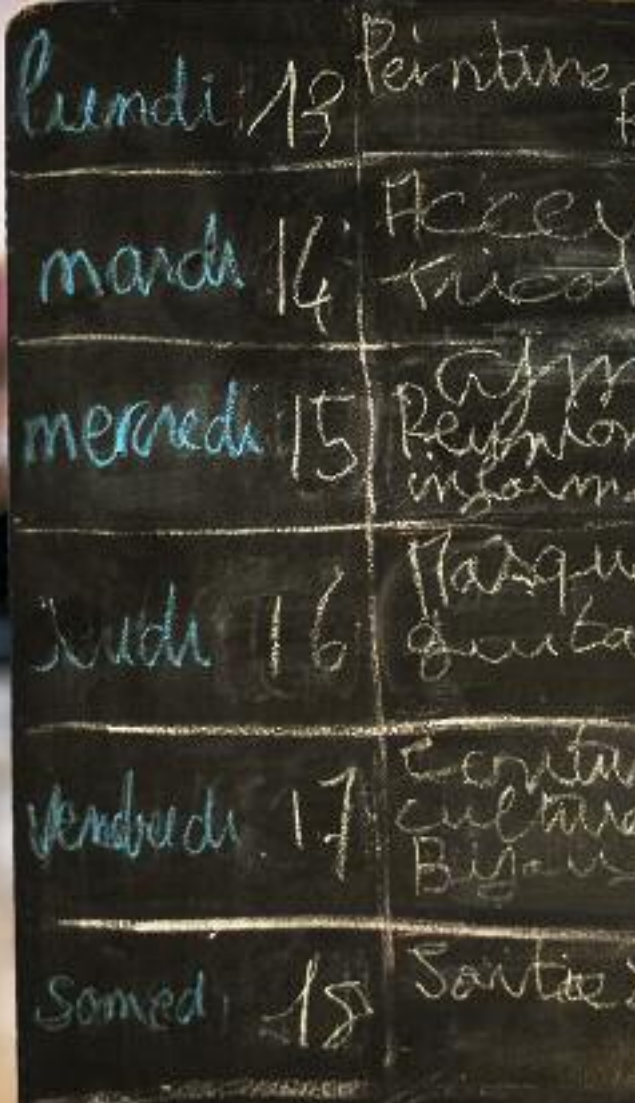 lundi 13 Peinture
mardi 14 Accey
Tricot
mercredi 15 Gym
Réunion
inform
Jeudi 16 Masqu
guita
vendredi 17 Ecritu
culture
Bijou
Samedi 18 Sortie